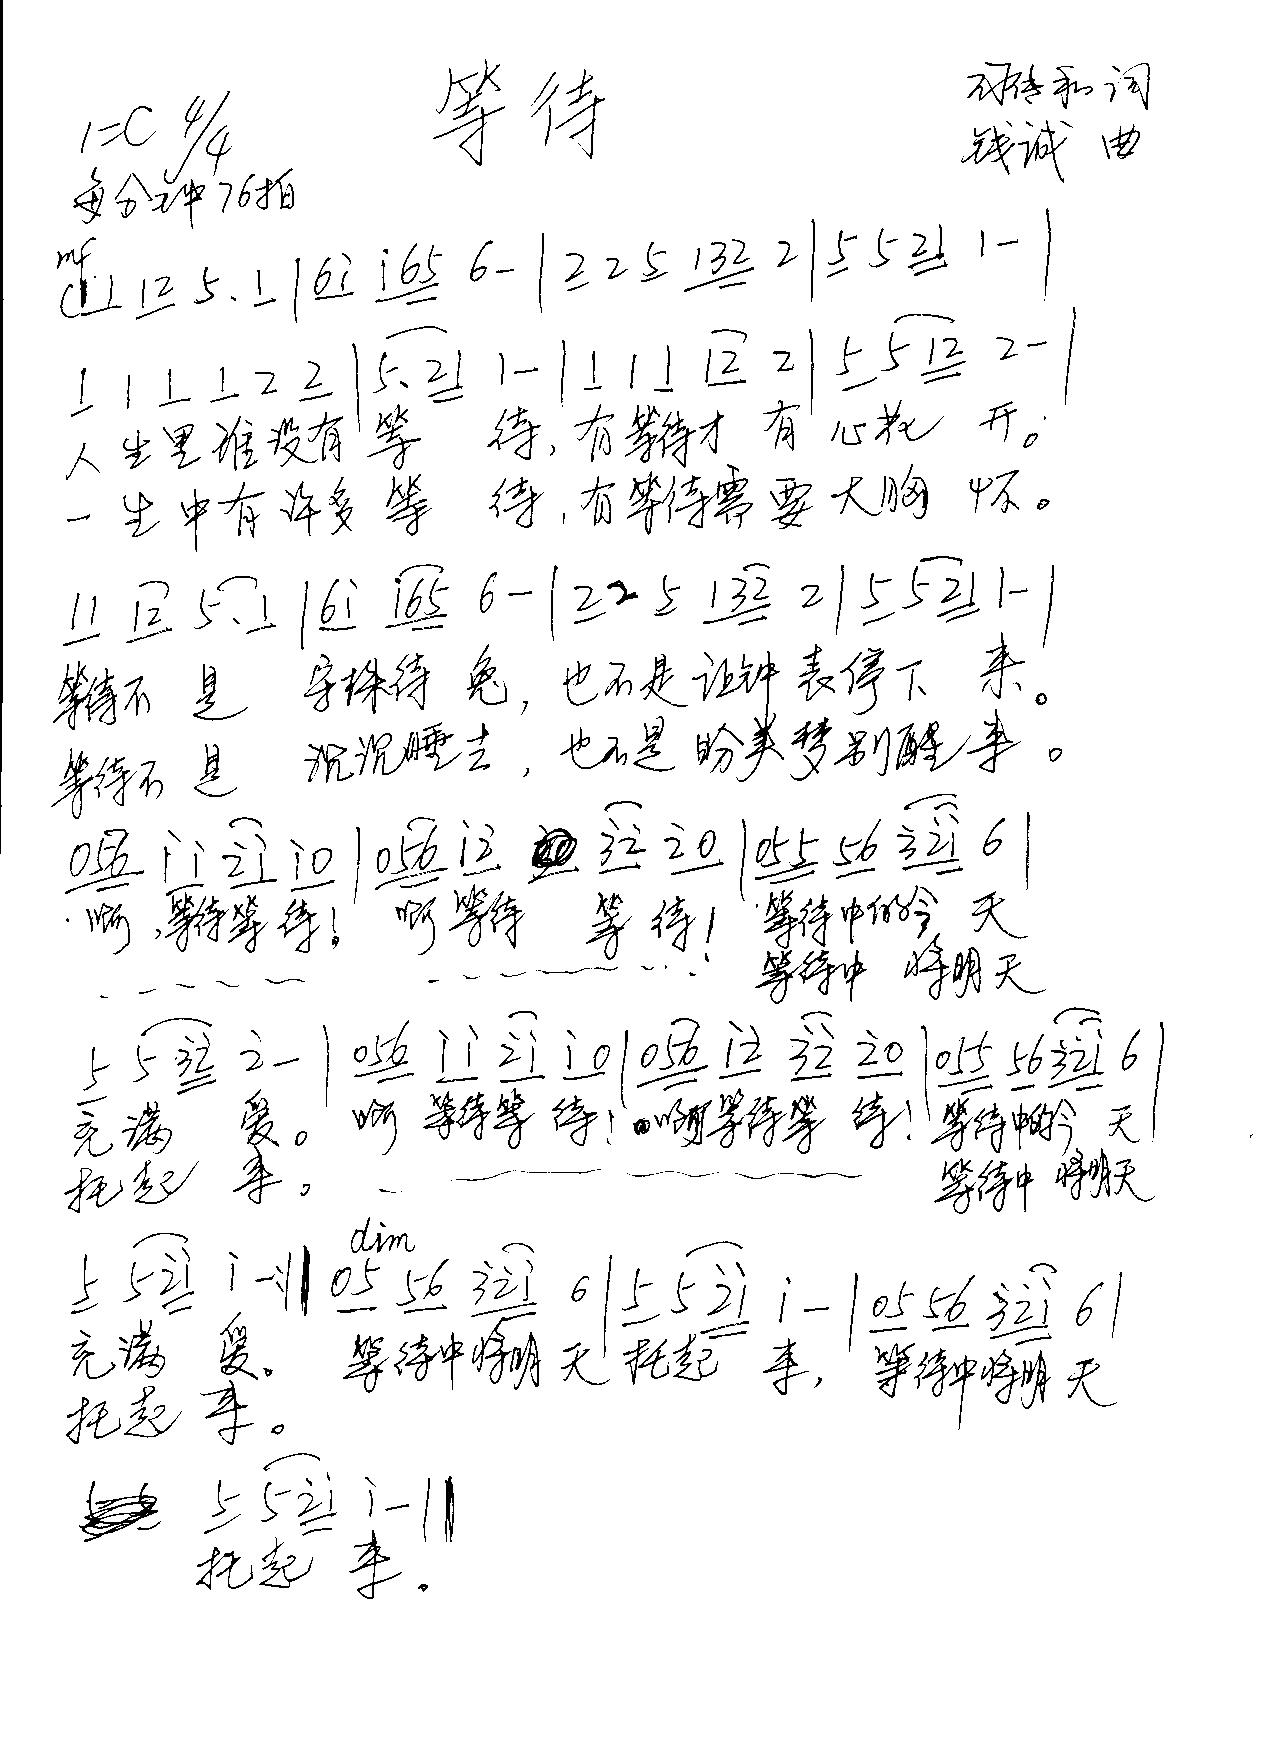 等待
和词
1=C 4/4
钱诚 曲
每分钟76拍
mf
11 12 5. 1 | 6i i65 6- | 2 2 5 132 2 | 5 5 21 1- |
1 1 1 1 2 2 | 5. 21 1- | 1 1 1 12 2 | 5 5 12 2- |
人生里谁没有等 待,有等待才 有 心花 开。
一生中有许多等 待,有等待需要大胸 怀。
11 12 5. 1 | 6i i65 6- | 2 2 5 132 2 | 5 5 21 1- |
等待不 是 守株待 兔,也不是让钟表停下 来。
等待不 是 沉沉睡去,也不是盼美梦别醒来。
056 ii 2i i0 | 056 i2 32 20 | 055 56 32i 6 |
啊,等待等 待! 啊 等待 等 待! 等待中的今 天
等待中 将明天
5 5 32 2- | 056 ii 2i i0 | 056 i2 32 20 | 055 56 32i 6 |
充满 爱。 啊 等待等 待! 啊等待等 待! 等待中的今 天
托起 来。 等待中 将明天
dim
5 5 2i i- :|| 05 56 32i 6 | 5 5 2i i- | 05 56 32i 6 |
充满 爱。 等待中将明 天 托起 来, 等待中将明 天
托起 来。
5 5 2i i- ||
托起 来。